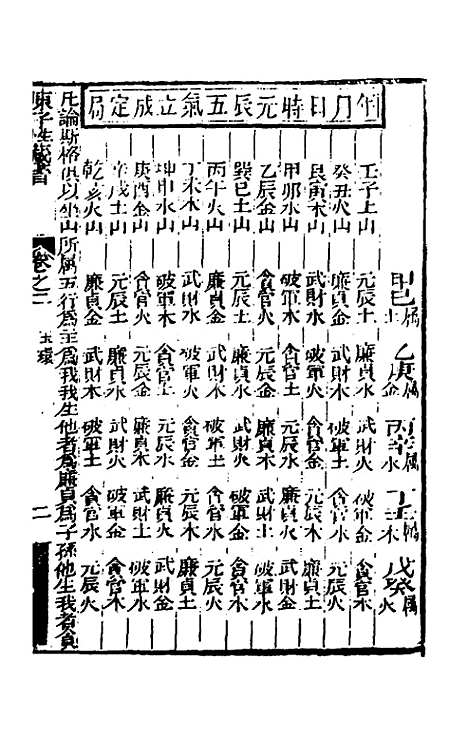 年月日時元辰五氣立成定局
甲己屬土 乙庚屬金 丙辛屬水 丁壬屬木 戊癸屬火
壬子土山 元辰土 廉貞水 武財火 破軍金 貪官木
癸丑火山 廉貞金 武財木 破軍土 貪官水 元辰火
艮寅木山 武財水 破軍火 貪官金 元辰木 廉貞土
甲卯水山 破軍木 貪官土 元辰水 廉貞火 武財金
乙辰金山 貪官火 元辰金 廉貞木 武財土 破軍水
巽巳土山 元辰土 廉貞水 武財火 破軍金 貪官木
丙午火山 廉貞金 武財木 破軍土 貪官水 元辰火
丁未木山 武財水 破軍火 貪官金 元辰木 廉貞土
坤申水山 破軍木 貪官土 元辰水 廉貞火 武財金
庚酉金山 貪官火 元辰金 廉貞木 武財土 破軍水
辛戌土山 元辰土 廉貞水 武財火 破軍金 貪官木
乾亥火山 廉貞金 武財木 破軍土 貪官水 元辰火
凡論斯格俱以坐山所屬五行為主為我我生他者為廉貞為子孫他生我者為貪
陳子性藏書 卷之二 玉環 二